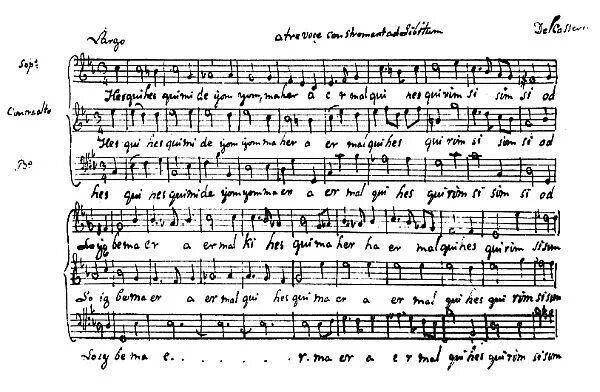 Largo a tre voçe con stromenti ad libitum De
Sopº
Hes qui hes qui mi de yom yom, ma her a e r mal qui hes qui rim si sim si od
Contralto
Hes qui hes qui mi de yom yom ma her a er mal qui hes qui rum si sim si od
hes qui hes qui mi de yom yom ma er a er mal qui hes qui rim si sim si od
So be ma er a er mal ki hes qui ma her ha er mal qui hes qui rim si sum
So ig be ma er a er mal qui hes qui ma er a er mal qui hes qui rim si sum
So sy be ma e . . . . . . r. ma er a e r mal qui hes qui rim si sum